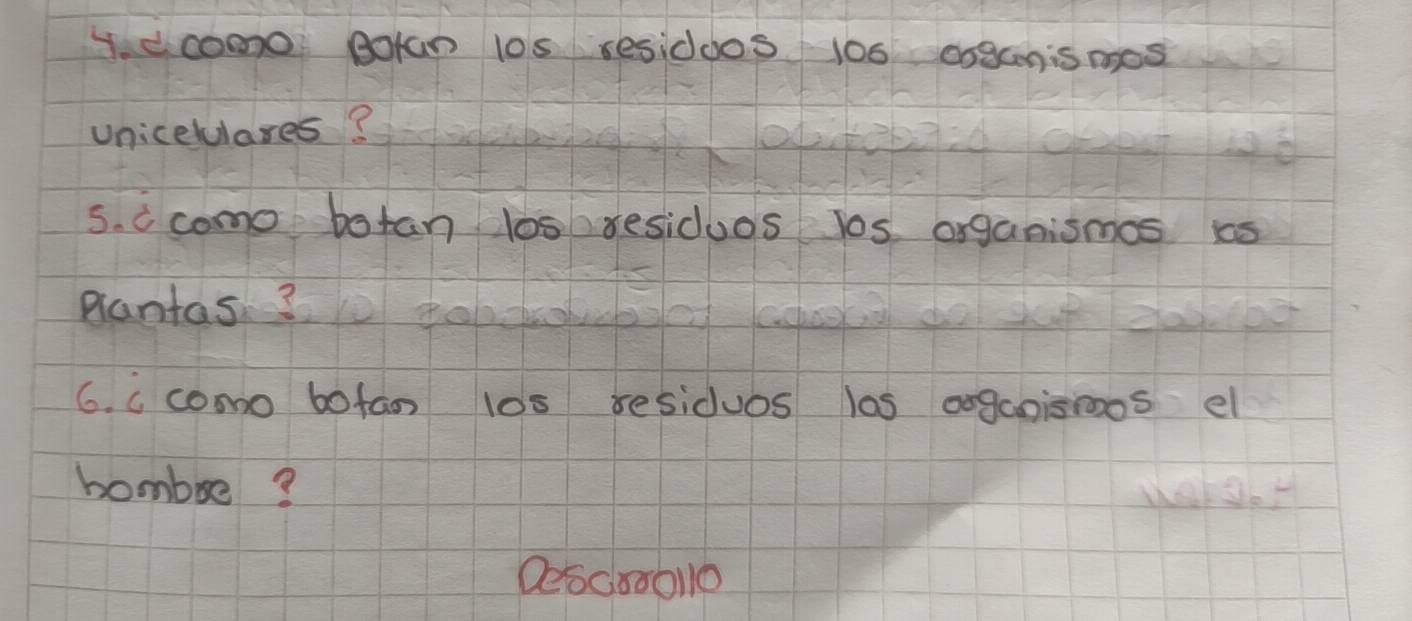 4. ¿como Botan los residuos los organismos
unicelulares?
5. ¿como botan los residuos los organismos las
plantas?
6. ¿como botan los residuos los organismos el
hombre?
Desarrollo